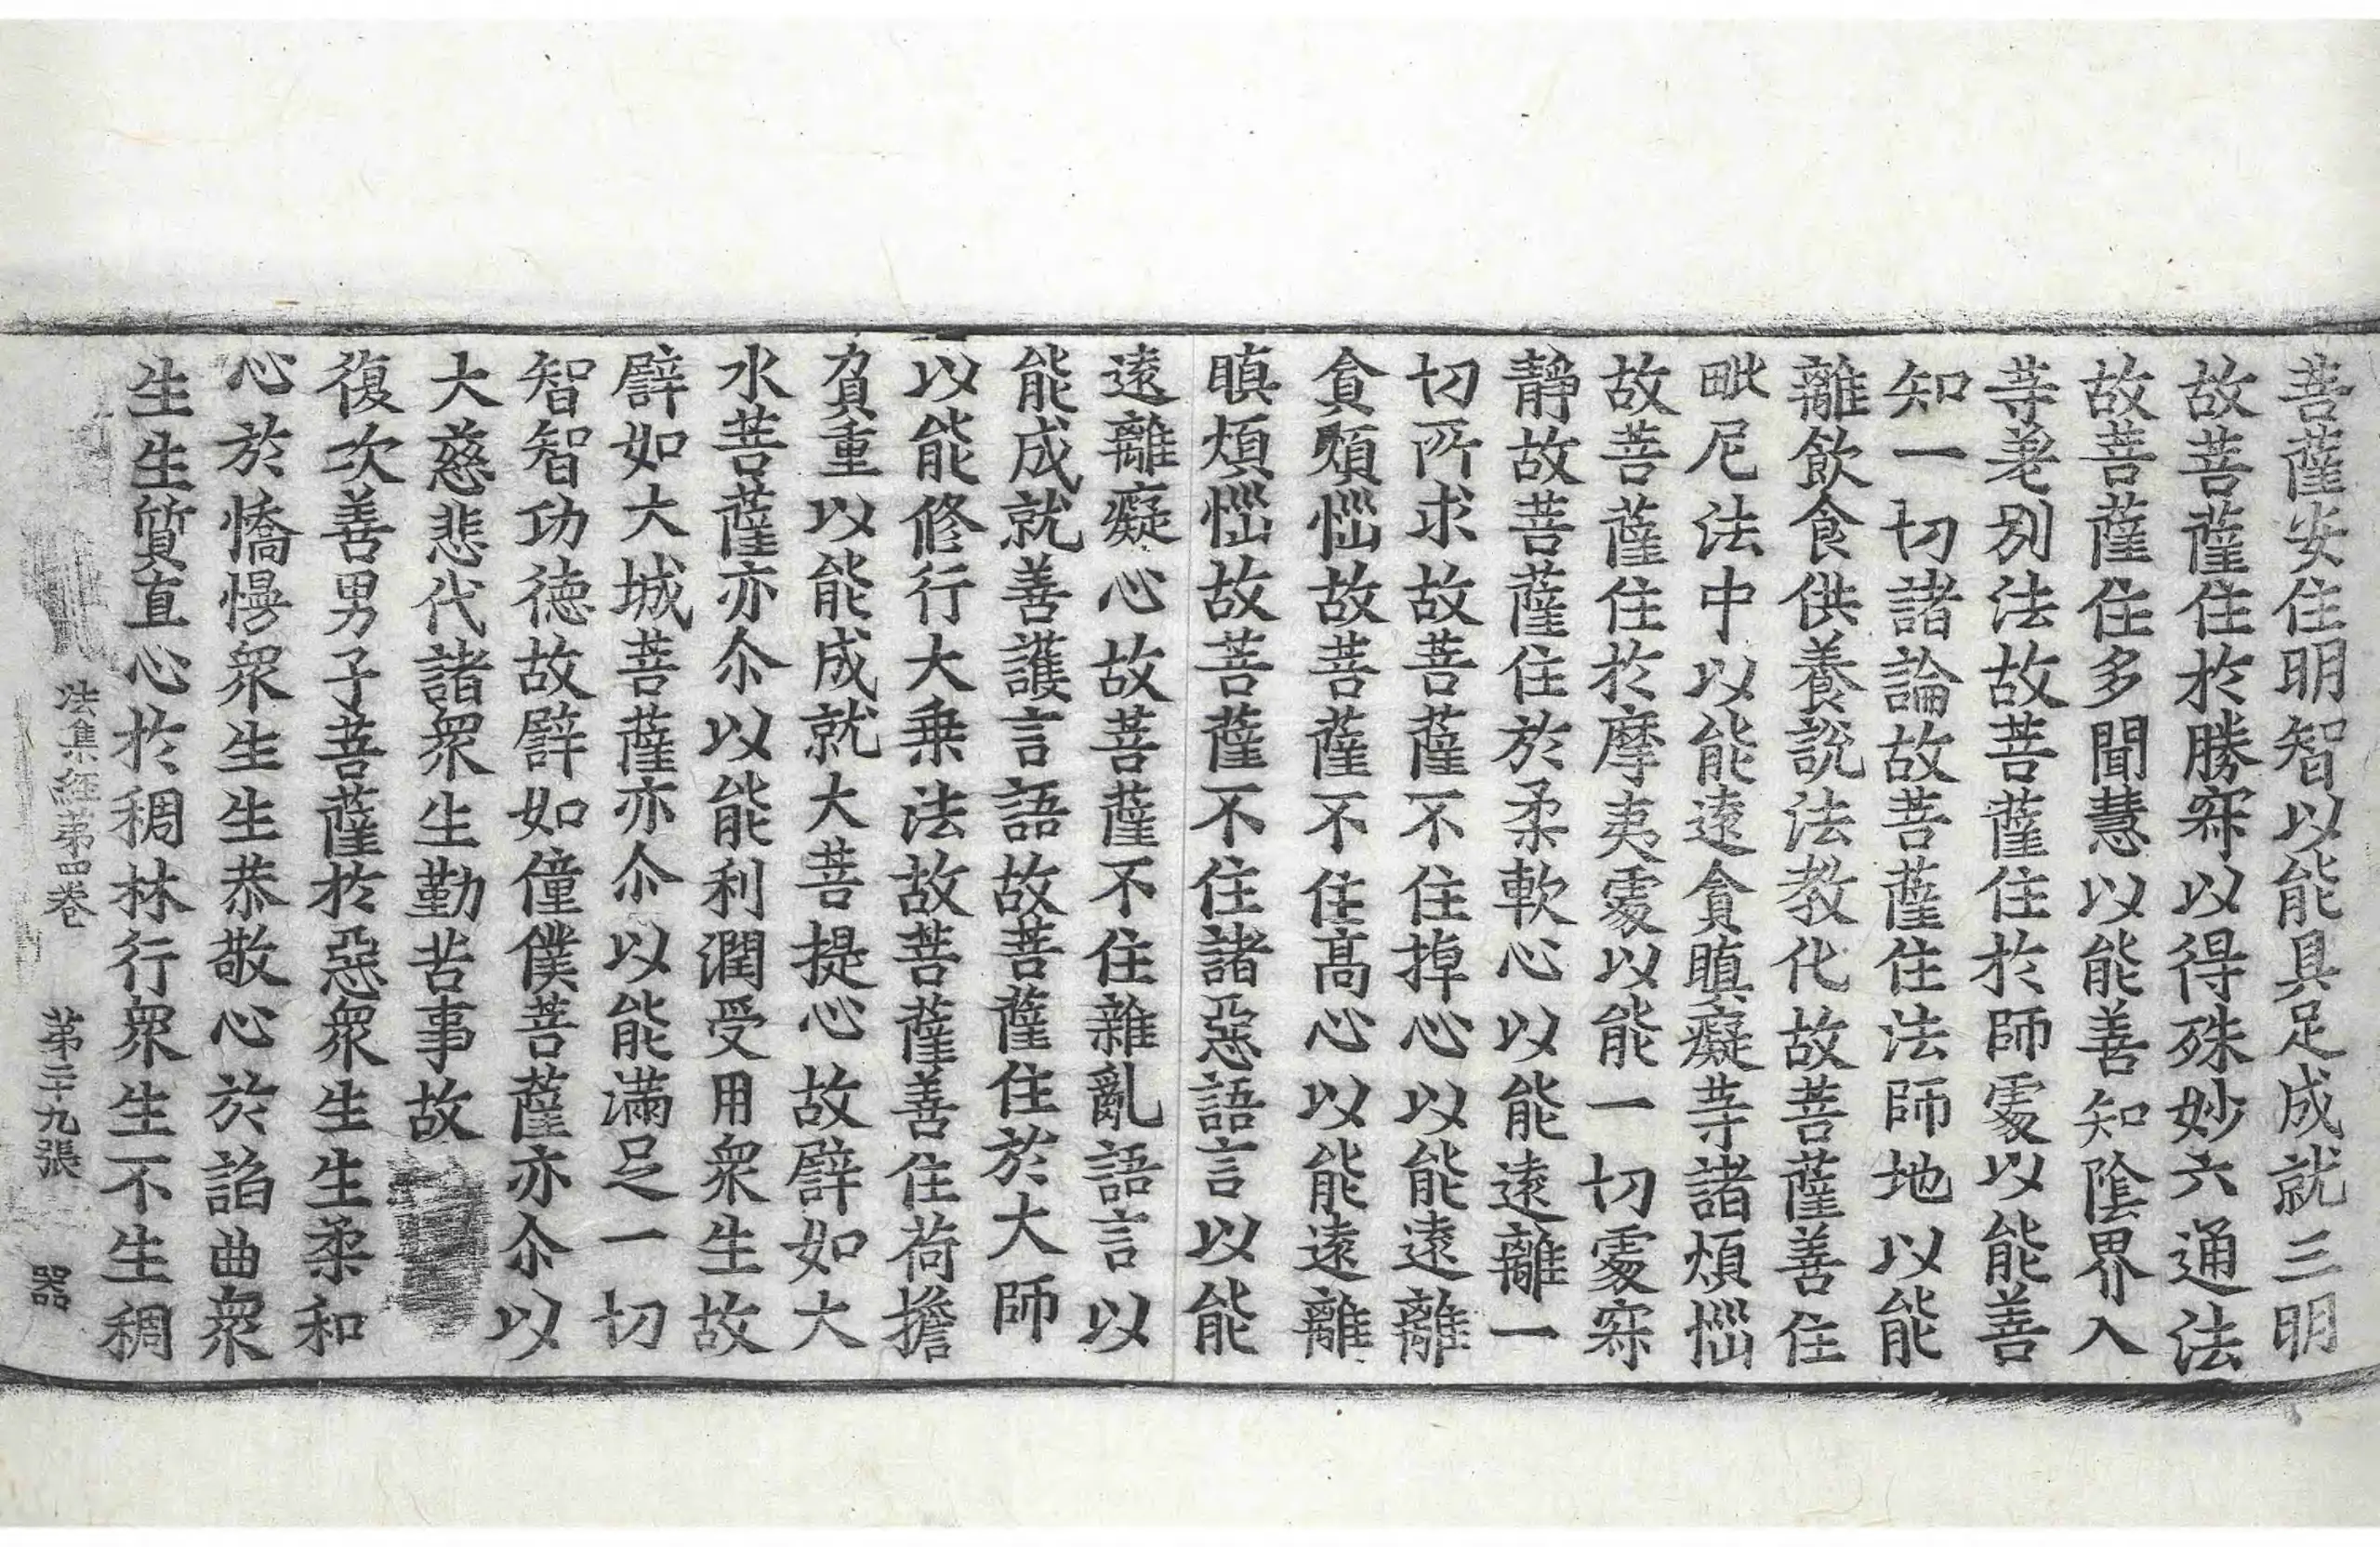 菩薩安住明智以能具足成就三明
故菩薩住於勝寂以得殊妙六通法
故菩薩住多聞慧以能善知陰界入
等差別法故菩薩住於師處以能善
知一切諸論故菩薩住法師地以能
離飲食供養說法教化故菩薩善住
毗尼法中以能遠貪瞋癡等諸煩惱
故菩薩住於摩夷處以能一切處寂
靜故菩薩住於柔軟心以能遠離一
切所求故菩薩不住掉心以能遠離
貪煩惱故菩薩不住高心以能遠離
瞋煩惱故菩薩不住諸惡語言以能
遠離癡心故菩薩不住雜亂語言以
能成就善護言語故菩薩住於大師
以能修行大乗法故菩薩善住荷擔
負重以能成就大菩提心故譬如大
水菩薩亦尒以能利潤受用衆生故
譬如大城菩薩亦尒以能滿足一切
智智功德故譬如僮僕菩薩亦尒以
大慈悲代諸衆生勤苦事故
復次善男子菩薩於惡衆生生柔和
心於憍慢衆生生恭敬心於諂曲衆
生生質直心於稠林行衆生不生稠
法集経第四卷 第二十九張 器